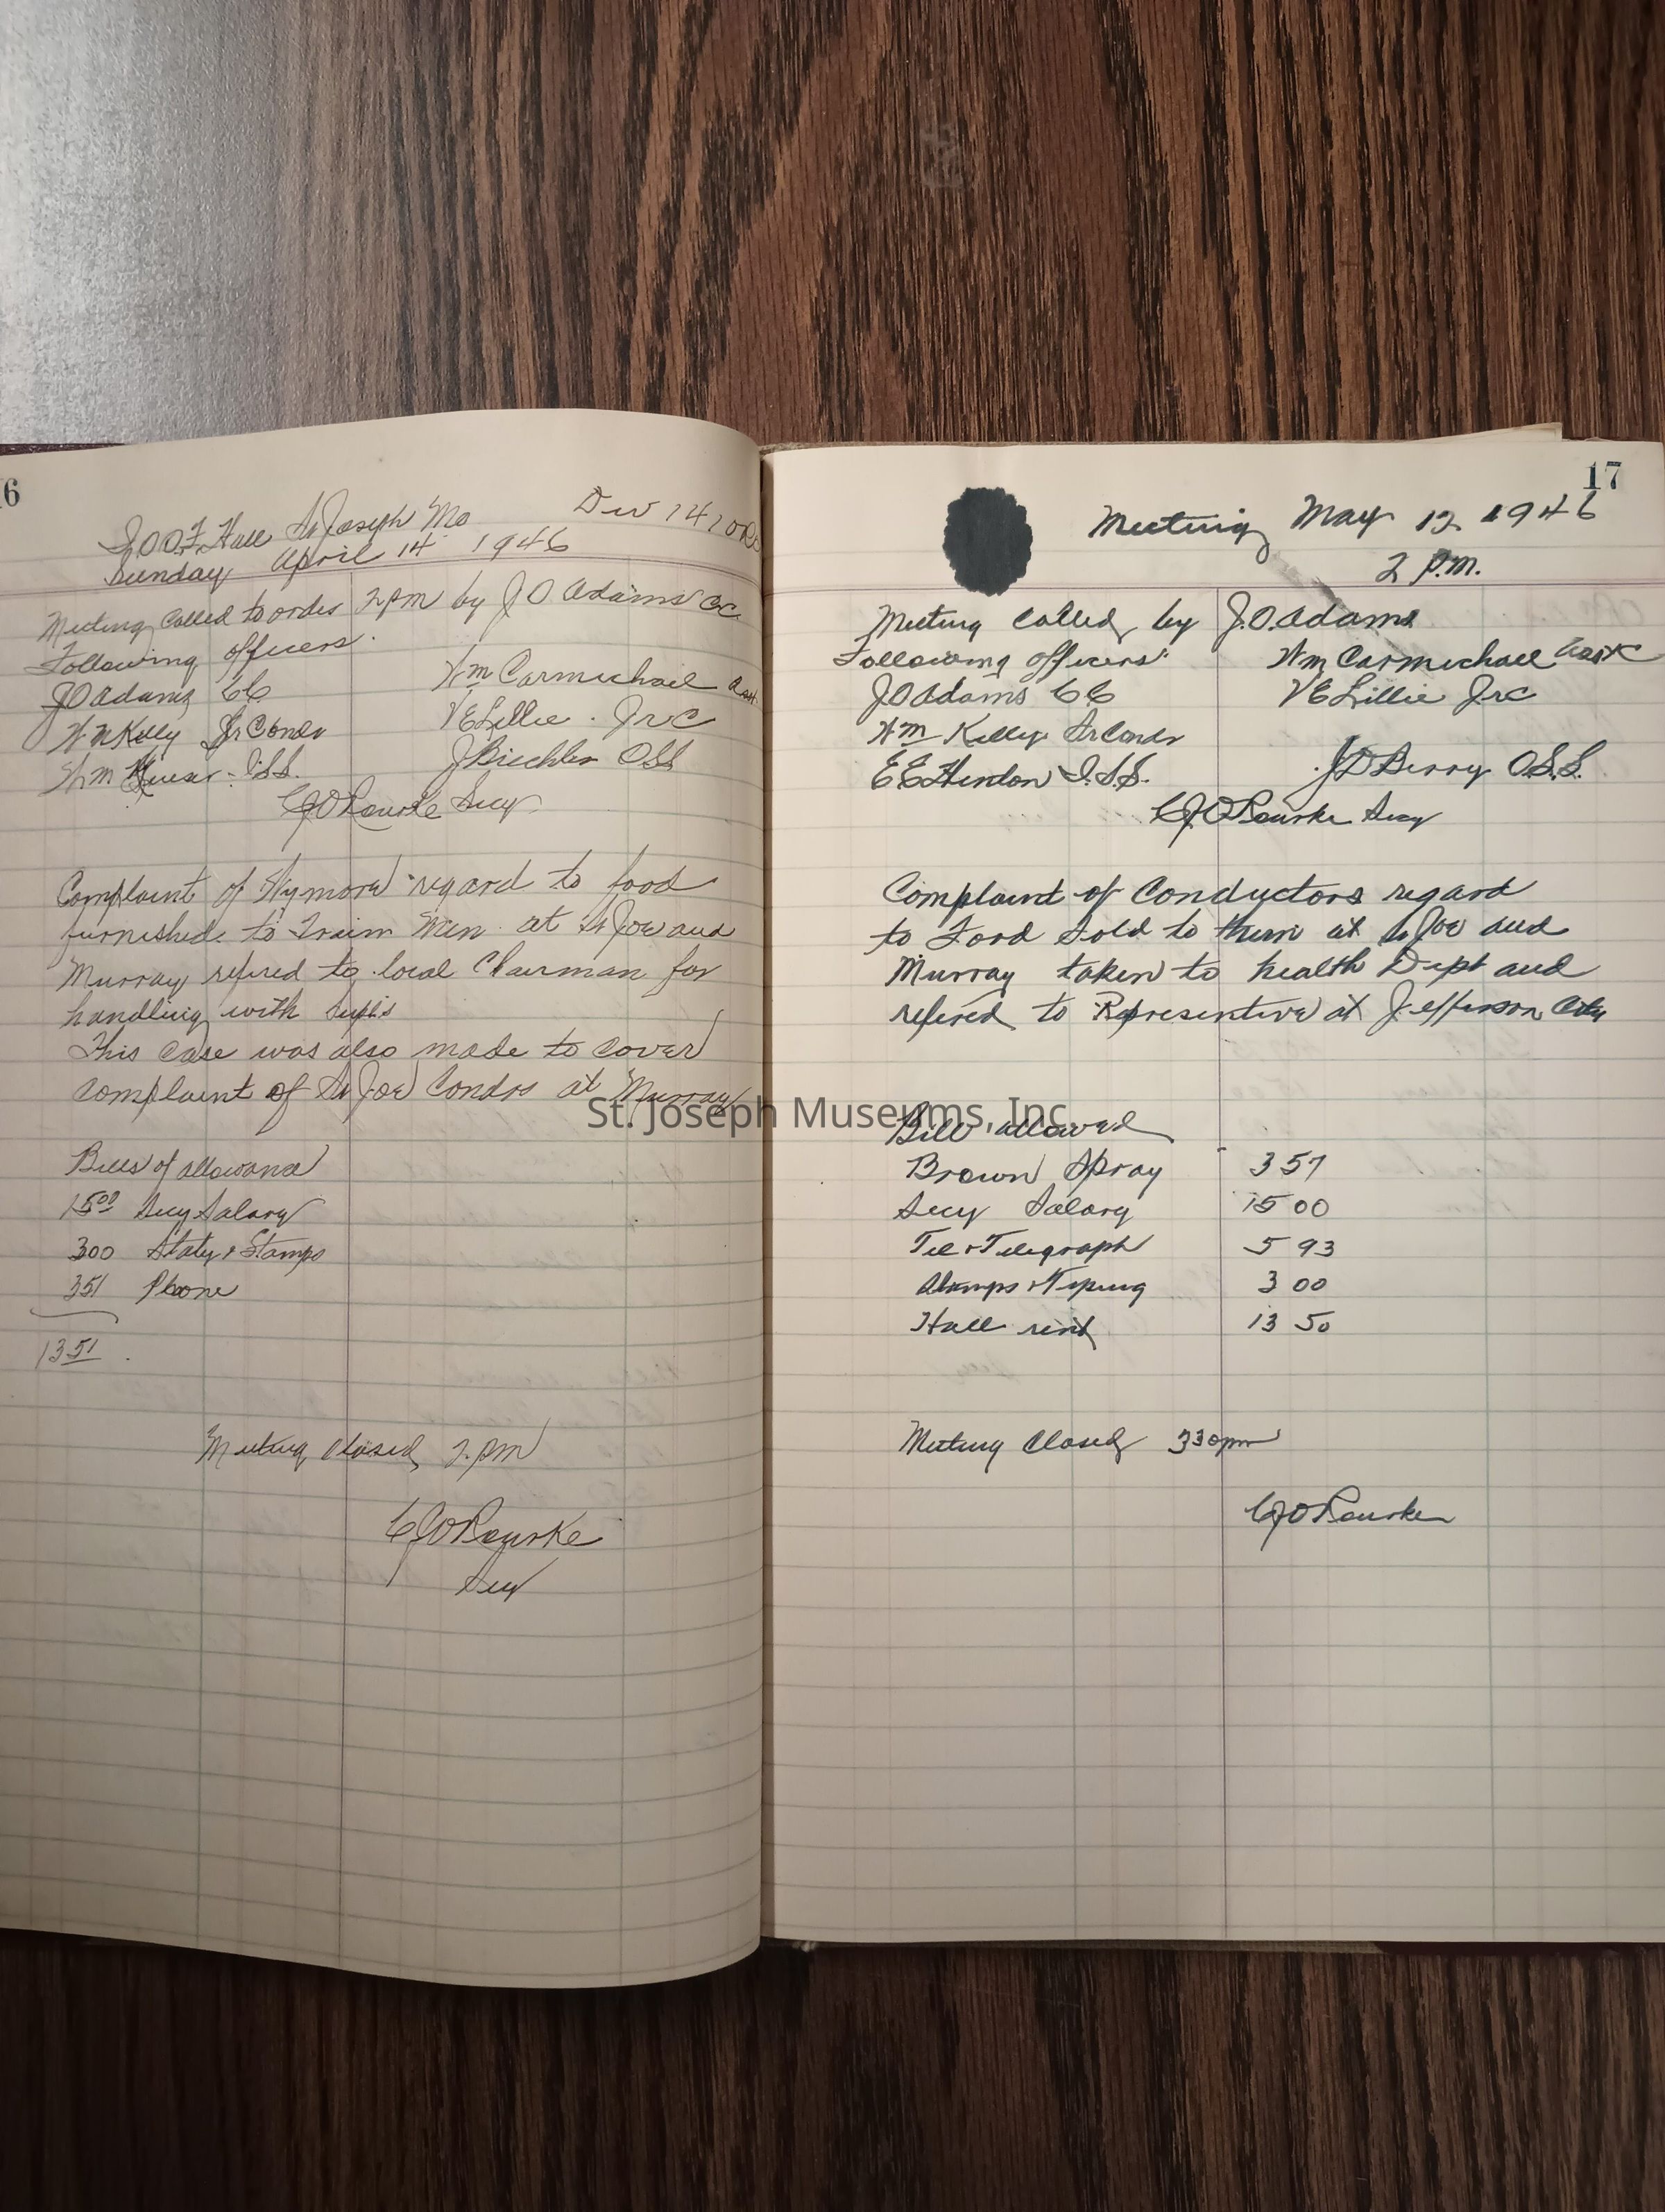 16
I.O.O.F. Hall St Joseph Mo Div 141 ORC
Sunday April 14 1946
Meeting Called to order 2 pm by J O Adams CC
Following officers.
J O Adams CC Wm Carmichael
W M Kelly Sr Condr V E Lillie. Jr C
Wm - I.S.S. J Biechler OSS
C J O Rourke Secy
Complaint of Wymore regard to food
furnished to Train Men at St Joe and
Murray refered to local Chairman for
handling with Supts
This case was also made to cover
complaint of St Joe Condrs at Murray
Bills of allowance
15 00 Secy Salary
3 00 Staty & Stamps
3 51 Phone
13 51
Meeting Closed 2. pm
C J O Rourke
Secy
17
Meeting May 12 1946
2 P.M.
Meeting Called by J. O. Adams
Following officers Wm Carmichael
J O Adams CC V E Lillie Jr C
Wm Kelly Sr Condr
E E Hendon I.S.S. J D Berry O.S.S.
C J O Rourke Secy
Complaint of Conductors regard
to Food Sold to them at St Joe and
Murray taken to health Dept and
refered to Representive at Jefferson City
Bills allowed
Brown Spray 3 57
Secy Salary 15 00
Tel & Telegraph 5 93
Stamps & Typing 3 00
Hall rent 13 50
Meeting Closed 330 pm
C J O Rourke
St. Joseph Museums, Inc.